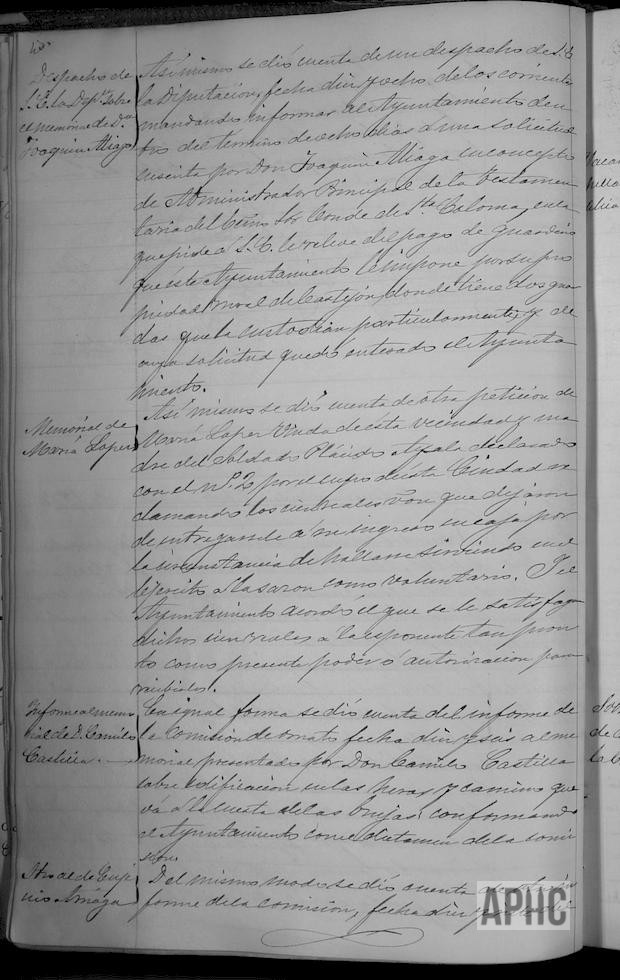 Despacho de
S. E. la Dip.on sobre
el memorial de Dn.
Joaquin Aliaga
Asi mismo se dió cuenta de un despacho de S. E.
la Diputacion, fecha diez y ocho de los corrientes
mandando informar al Ayuntamiento den-
tro del término de ocho dias á una solicitud
suscrita por Don Joaquin Aliaga en concepto
de Administrador Principal de la Testamen
taria del Exmo Sor Conde de Sta Coloma, en la
que pide á S. E. le releve del pago de guarderio
que éste Ayuntamiento le impone por su pro
piedad rural de Castejon, donde tiene dos guar
das que la custodian particularmente, y de
cuya solicitud quedó enterado el Ayunta
miento.
Memorial de
Maria Lopez
Asi mismo se dió cuenta de otra peticion de
Maria Lopez Viuda de ésta vecindad y ma
dre del soldado Plácido Ayala declarado
con el nº. 2 por el cupo de ésta Ciudad re
clamando los cien reales von que dejaron
de entregarsele á su ingreso en caja por
la circunstancia de hallarse sirviendo en el
Ejército a la sazon como voluntario. Y el
Ayuntamiento acordó el que se le satisfaga
dichos cien reales a la esponente tan pron
to como presente poder ó autorizacion para
recibirlos.
Informe al memo
rial de D. Camilo
Castilla.
En igual forma se dió cuenta del informe de
la Comision de ornato fecha diez y seis al me
morial presentado por Don Camilo Castilla
sobre edificacion en las heras y camino que
vá á la cuesta de las brujas conformando
el Ayuntamiento con el dictamen de la comi
sion.
Itro al de Euge
nio Arriaga
Del mismo modo se dió cuenta de otro in
forme de la comision, fecha diez y seis del
APHC